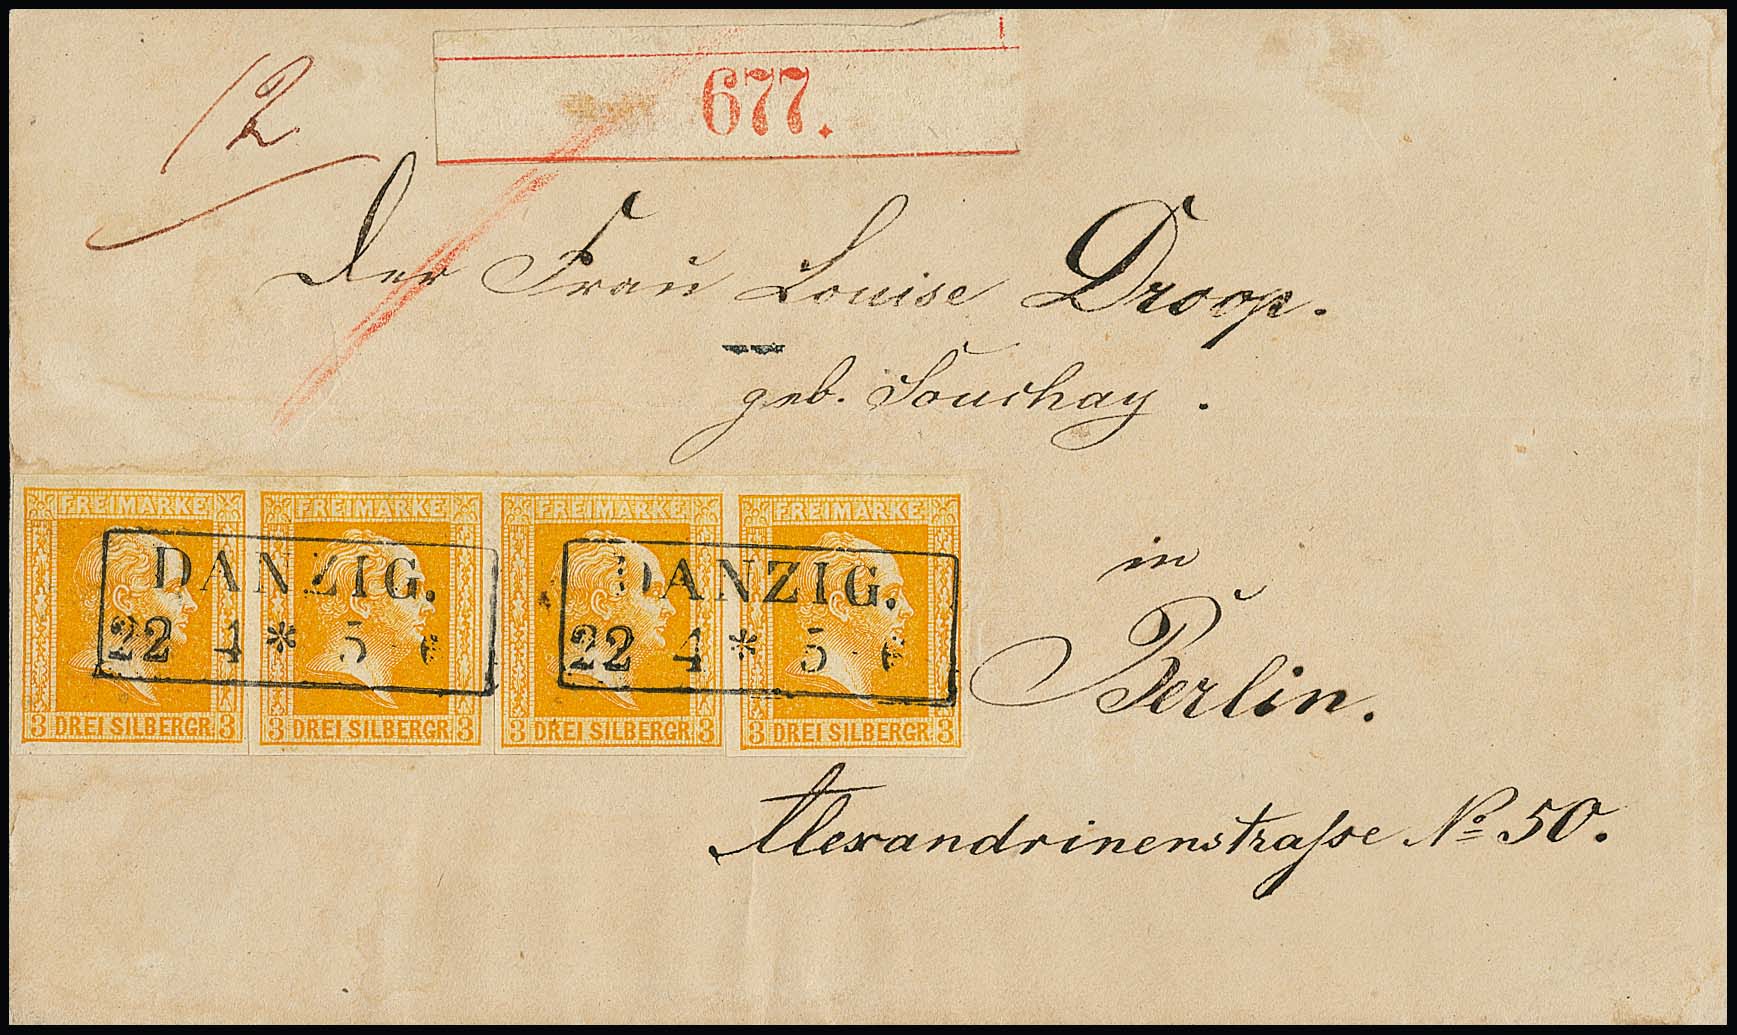 12
677.
Der Frau Louise Droop.
geb. Souchay.
FREIMARKE FREIMARKE FREIMARKE FREIMARKE
DANZIG. DANZIG.
22 4 * 5- 22 4 * 5-
3 DREI SILBERGR. 3 3 DREI SILBERGR. 3 3 DREI SILBERGR. 3 3 DREI SILBERGR. 3
in
Berlin.
Alexandrinenstraſse No 50.